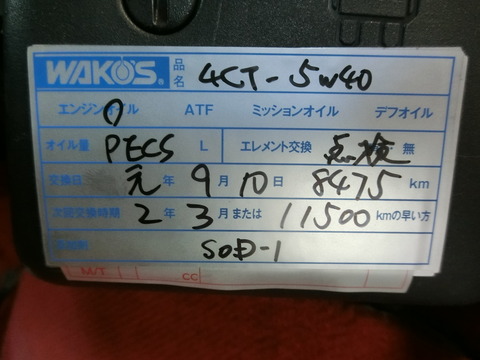 WAKO'S® 品名 4CT-5W40
エンジンオイル ATF ミッションオイル デフオイル
オイル量 PECS L エレメント交換 点検 無
交換日 元年 9月 10日 8475 km
次回交換時期 2年 3月または 11500 kmの早い方
添加剤 SOD-1
M/T CC